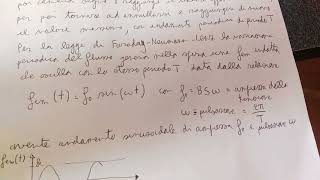 per poi tornare ad annullarsi e raggiungere di nuovo
il valore massimo, con andamento periodico di periodo T
Per la legge di Faraday-Neumann-Lenz la variazione
periodica del flusso genera nella spira una fem indotta
che oscilla con lo stesso periodo T data dalla relazione
fem (t) = f₀ sin(ωt) con f₀ = BSω = ampiezza della
tensione
ω = pulsazione = 2π/T
avente andamento sinusoidale di ampiezza f₀ e pulsazione ω
fem(t)